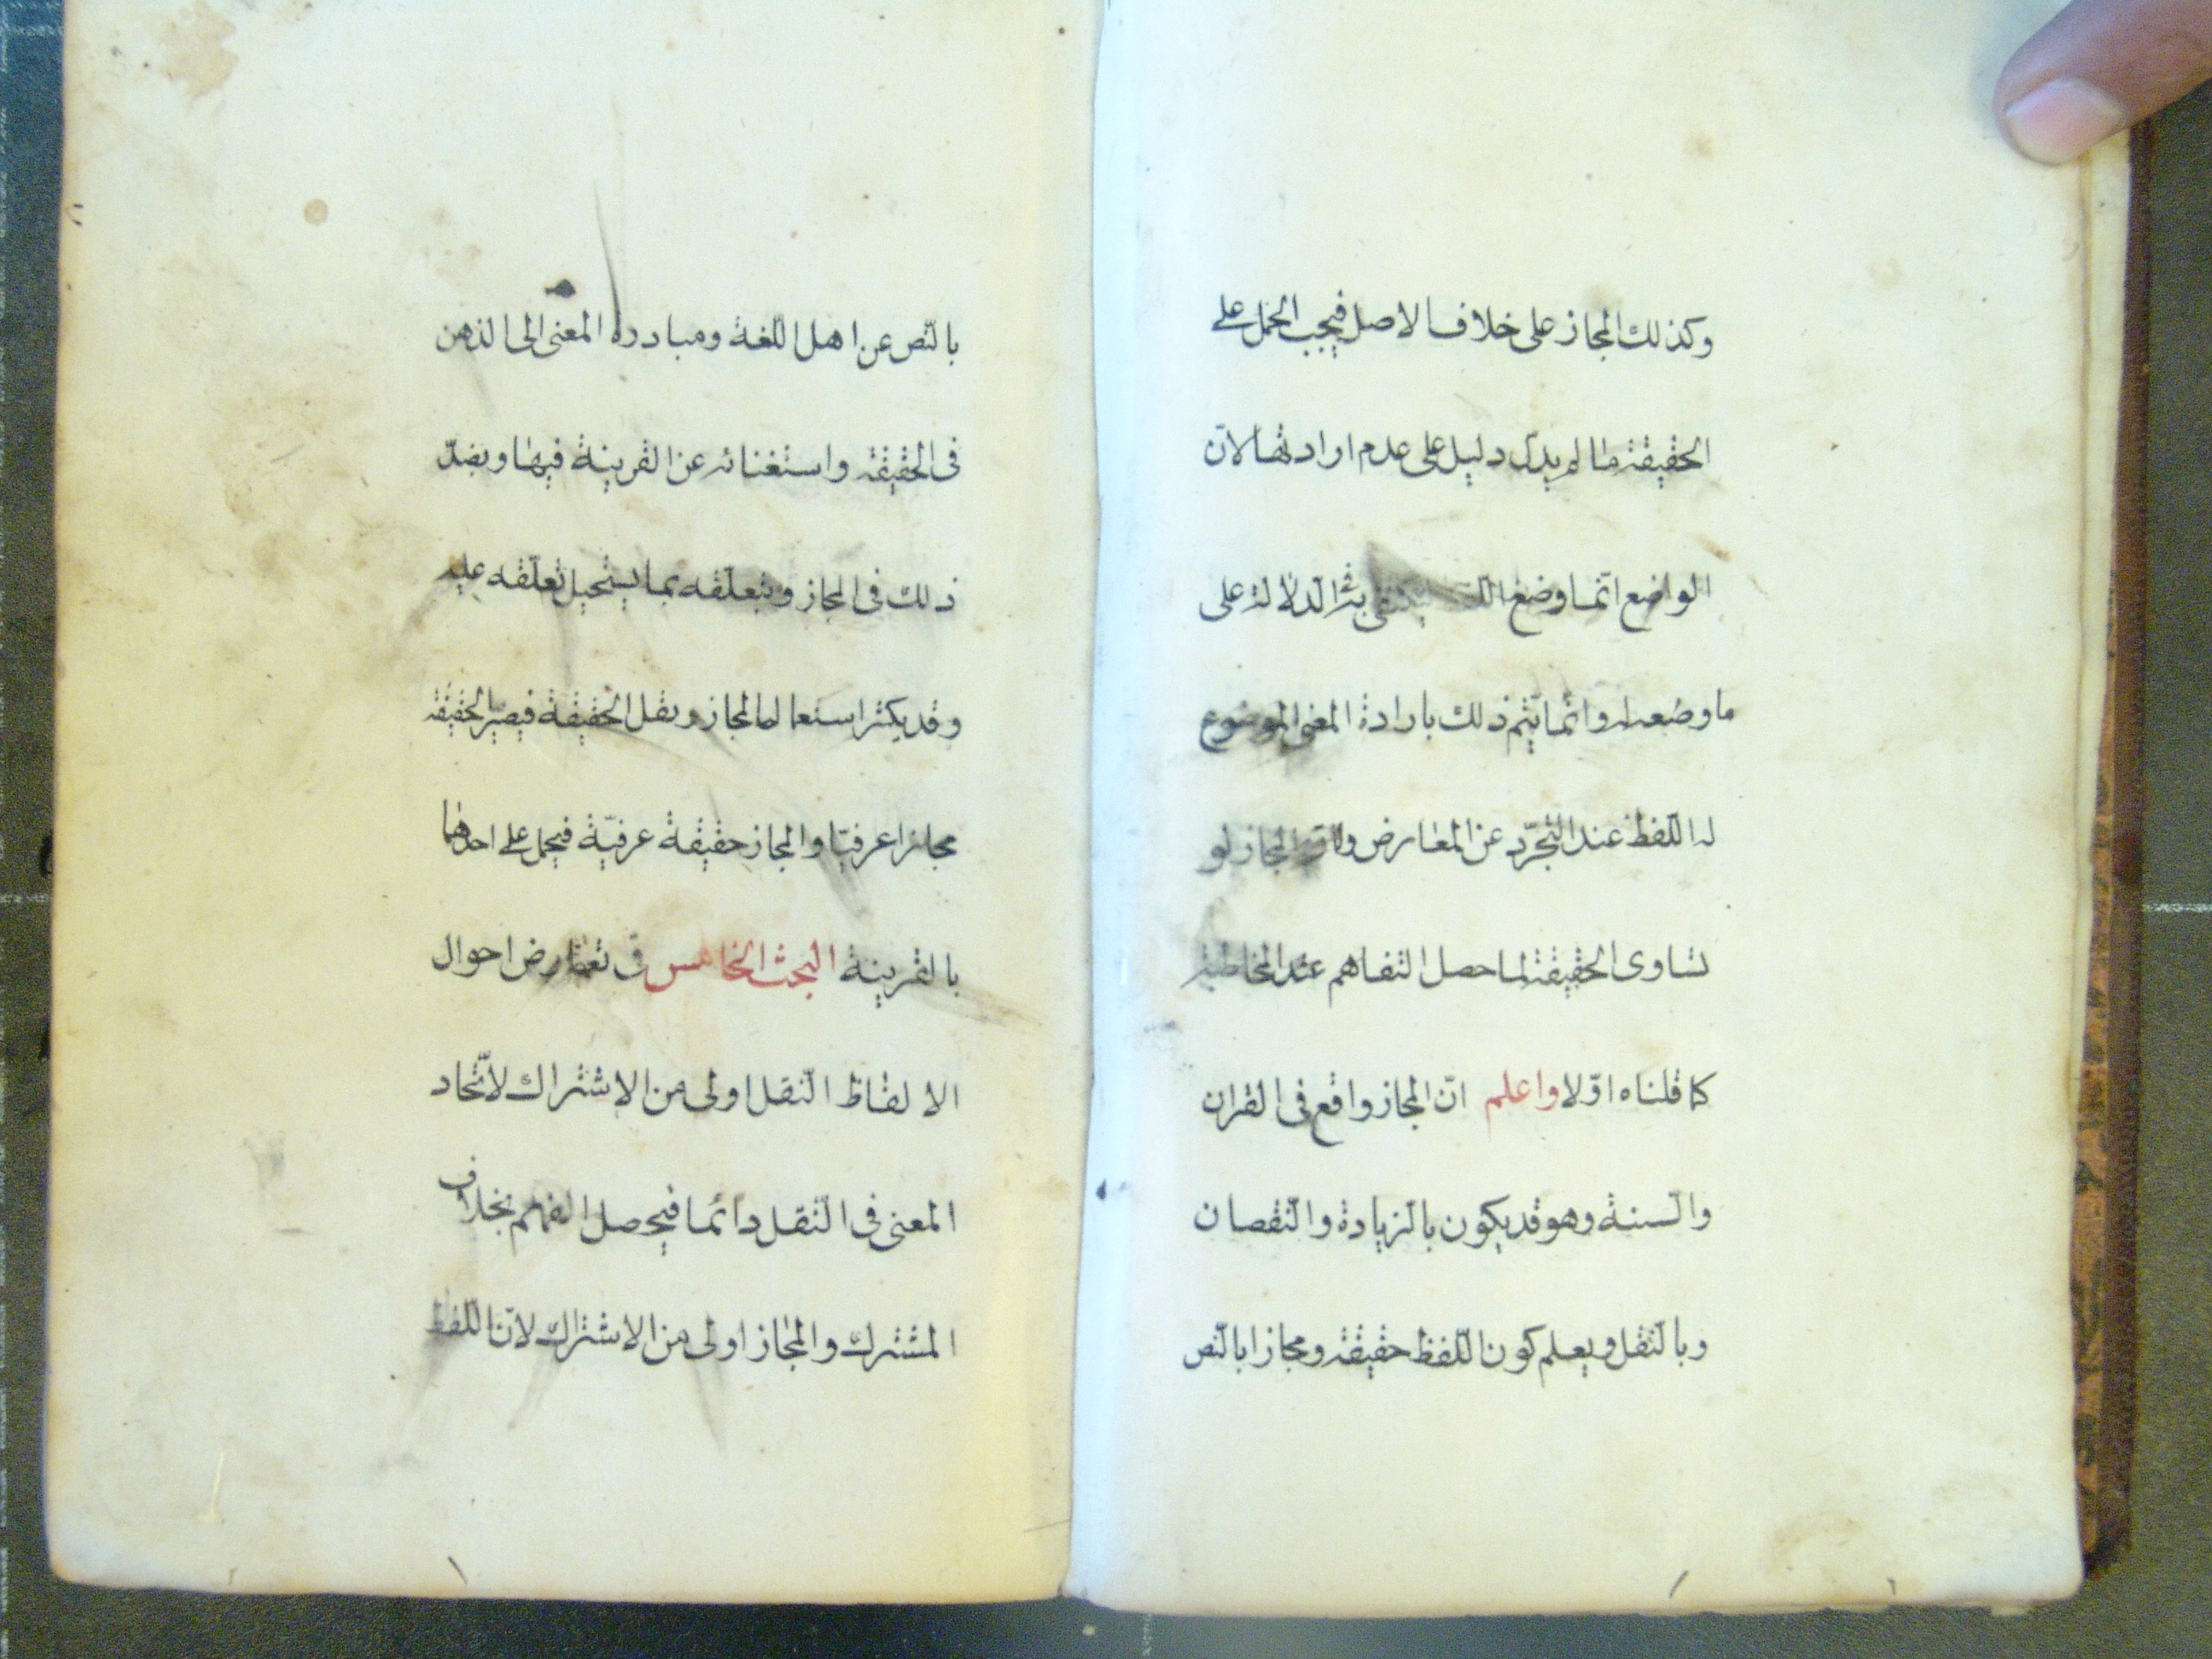 وكذلك المجاز على خلاف الاصل فيجب الحمل على
الحقيقة ما لم يدل دليل على عدم ارادتها لانّ
الواضع انّما وضع ليكتفى به فى الدلالة على
ما وضعه له وانّما يتم ذلك بارادة المعنى الموضوع
له اللّفظ عند التجرّد عن المعارض ولانّ المجاز لو
تساوى الحقيقة لما حصل التفاهم عند المخاطبة
كما قلناه اوّلا واعلم انّ المجاز واقع فى القران
والسنة وهو قد يكون بالزيادة والنّقصان
وبالنّقل ويعلم كون اللّفظ حقيقة ومجازا بالنّص
بالنّص عن اهل اللّغة ومبادرة المعنى الى الذهن
فى الحقيقة واستغنائه عن القرينة فيها وبضدّ
ذلك فى المجاز وبتعلّقه بما يستحيل تعلّقه عليه
وقد يكثر استعمال المجاز ويقل الحقيقة فيصير الحقيقة
مجازا عرفيّا والمجاز حقيقة عرفيّة فيحمل على احدهما
بالقرينة البحث الخامس فى تعارض احوال
الالفاظ النّقل اولى من الاشتراك لاتّحاد
المعنى فى النّقل دائما فيحصل الفهم بخلاف
المشترك والمجاز اولى من الاشتراك لانّ اللّفظ